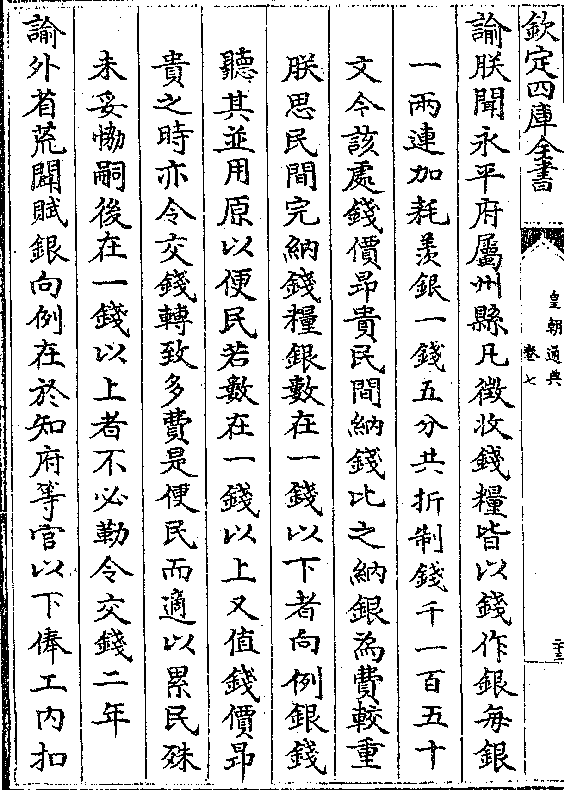 欽定四庫全書
皇朝通典
卷七
二十三
諭朕聞永平府屬州縣凡徵收錢糧皆以錢作銀每銀
一兩連加耗羨銀一錢五分共折制錢千一百五十
文今該處錢價昂貴民間納錢比之納銀為費較重
朕思民間完納錢糧銀數在一錢以下者向例銀錢
聽其並用原以便民若數在一錢以上又值錢價昂
貴之時亦令交錢轉致多費是便民而適以累民殊
未妥協嗣後在一錢以上者不必勒令交錢二年
諭外省荒闕賦銀向例在於知府等官以下俸工内扣